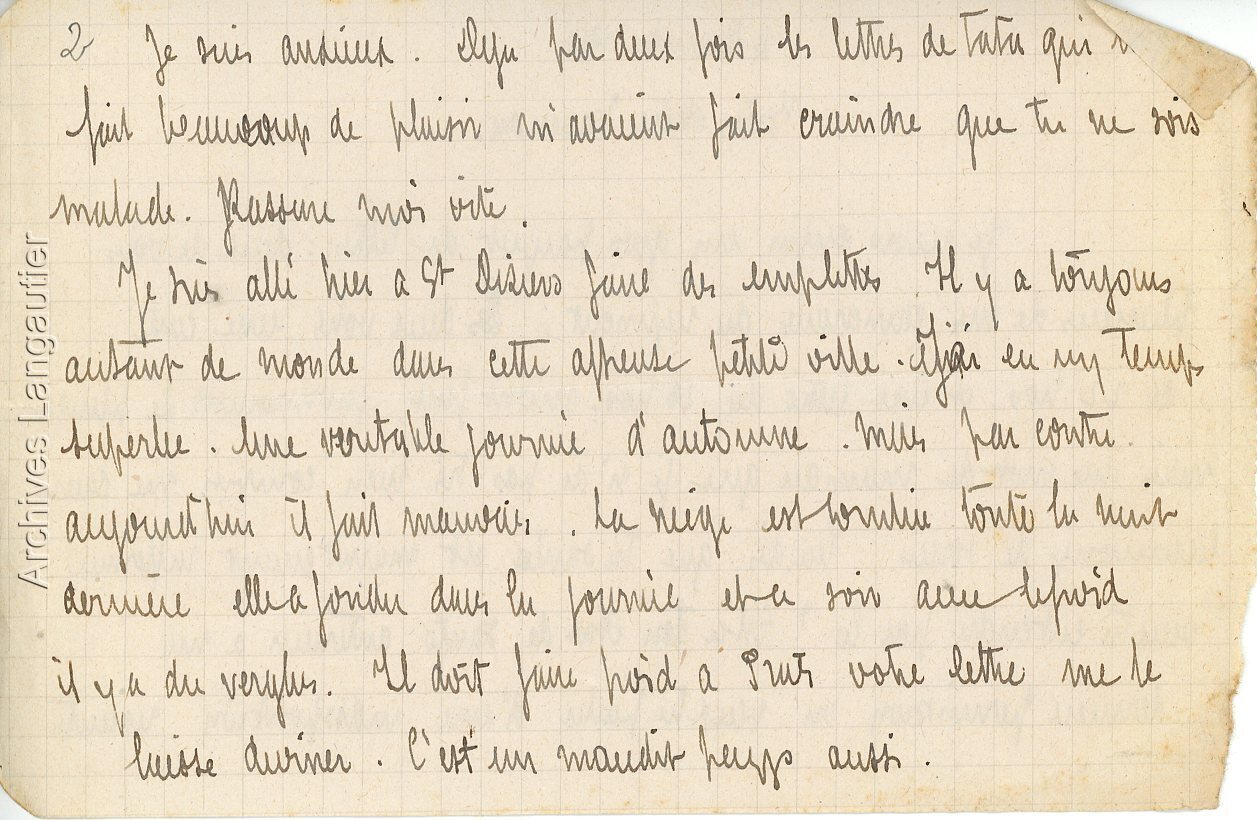 2 Je suis anxieux. Deja par deux fois les lettres de tata qui
fait beaucoup de plaisir m'avaient fait craindre que tu ne sois
malade. Rassure moi vite.
Je suis allé hier a St Diziers faire des emplettes. Il y a toujours
autant de monde dans cette affreuse petite ville. J'ai eu un temps
superbe. Une veritable journée d'automne. Mais par contre
aujourd'hui il fait mauvais. La neige est tombée toute la nuit
dernière elle a fondu dans la journée et ce soir avec le froid
il y a du verglas. Il doit faire froid a votre lettre me le
laisse deviner. C'est un maudit pays aussi.
Archives Langautier